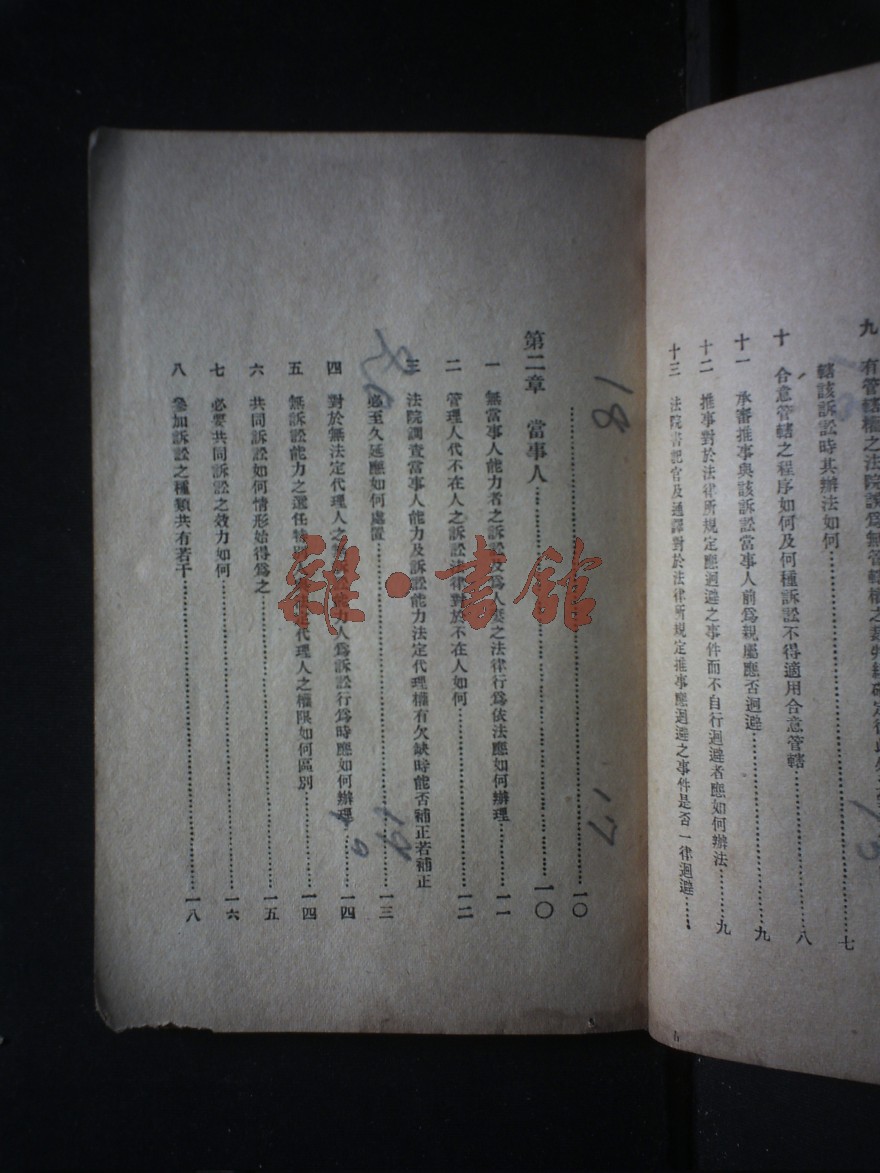 九 有管轄權之法院誤為無管轄權之裁
轄該訴訟時其辦法如何……七
十 合意管轄之程序如何及何種訴訟不得適用合意管轄……八
十一 承審推事與該訴訟當事人前為親屬應否迴避……九
十二 推事對於法律所規定應迴避之事件而不自行迴避者應如何辦法……九
十三 法院書記官及通譯對於法律所規定推事應迴避之事件是否一律迴避……
……一〇
第二章 當事人……一〇
一 無當事人能力者之訴訟及為人
之法律行為依法應如何辦理……一一
二 管理人代不在人之訴訟法律對於不在人如何……一二
三 法院調查當事人能力及訴訟能力法定代理權有欠缺時能否補正若補正
必至久延應如何處置……一三
四 對於無法定代理人之
訴訟能力人為訴訟行為時應如何辦理……一四
五 無訴訟能力之選任特別
法定代理人之權限如何區別……一四
六 共同訴訟如何情形始得為之……一五
七 必要共同訴訟之效力如何……一六
八 參加訴訟之種類共有若干……一八
18
17
雜·書館